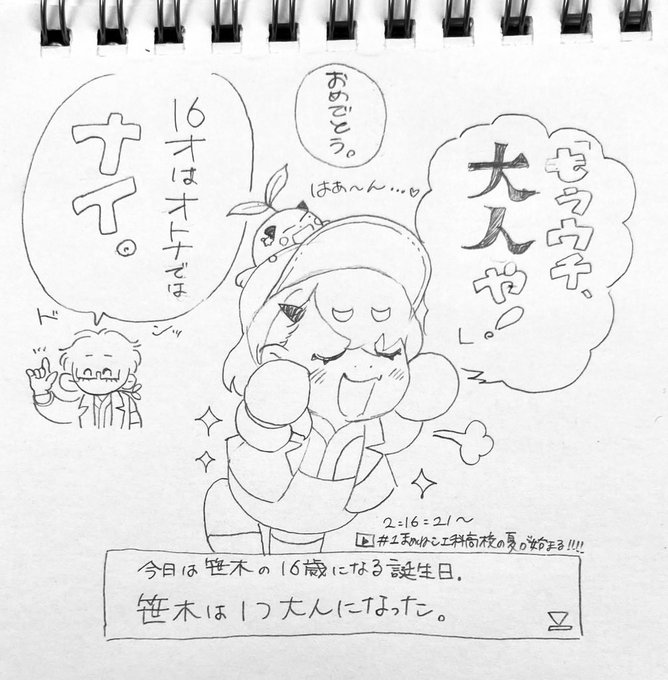 「もうウチ、
大人や!」。
おめでとう。
はぁ〜ん…♡
16才はオトナでは
ナイ。
ドンッ
2:16:21〜
#1まめねこ工科高校の夏が始まる!!!!
今日は笹木の16歳になる誕生日.
笹木は1つ大人になった。